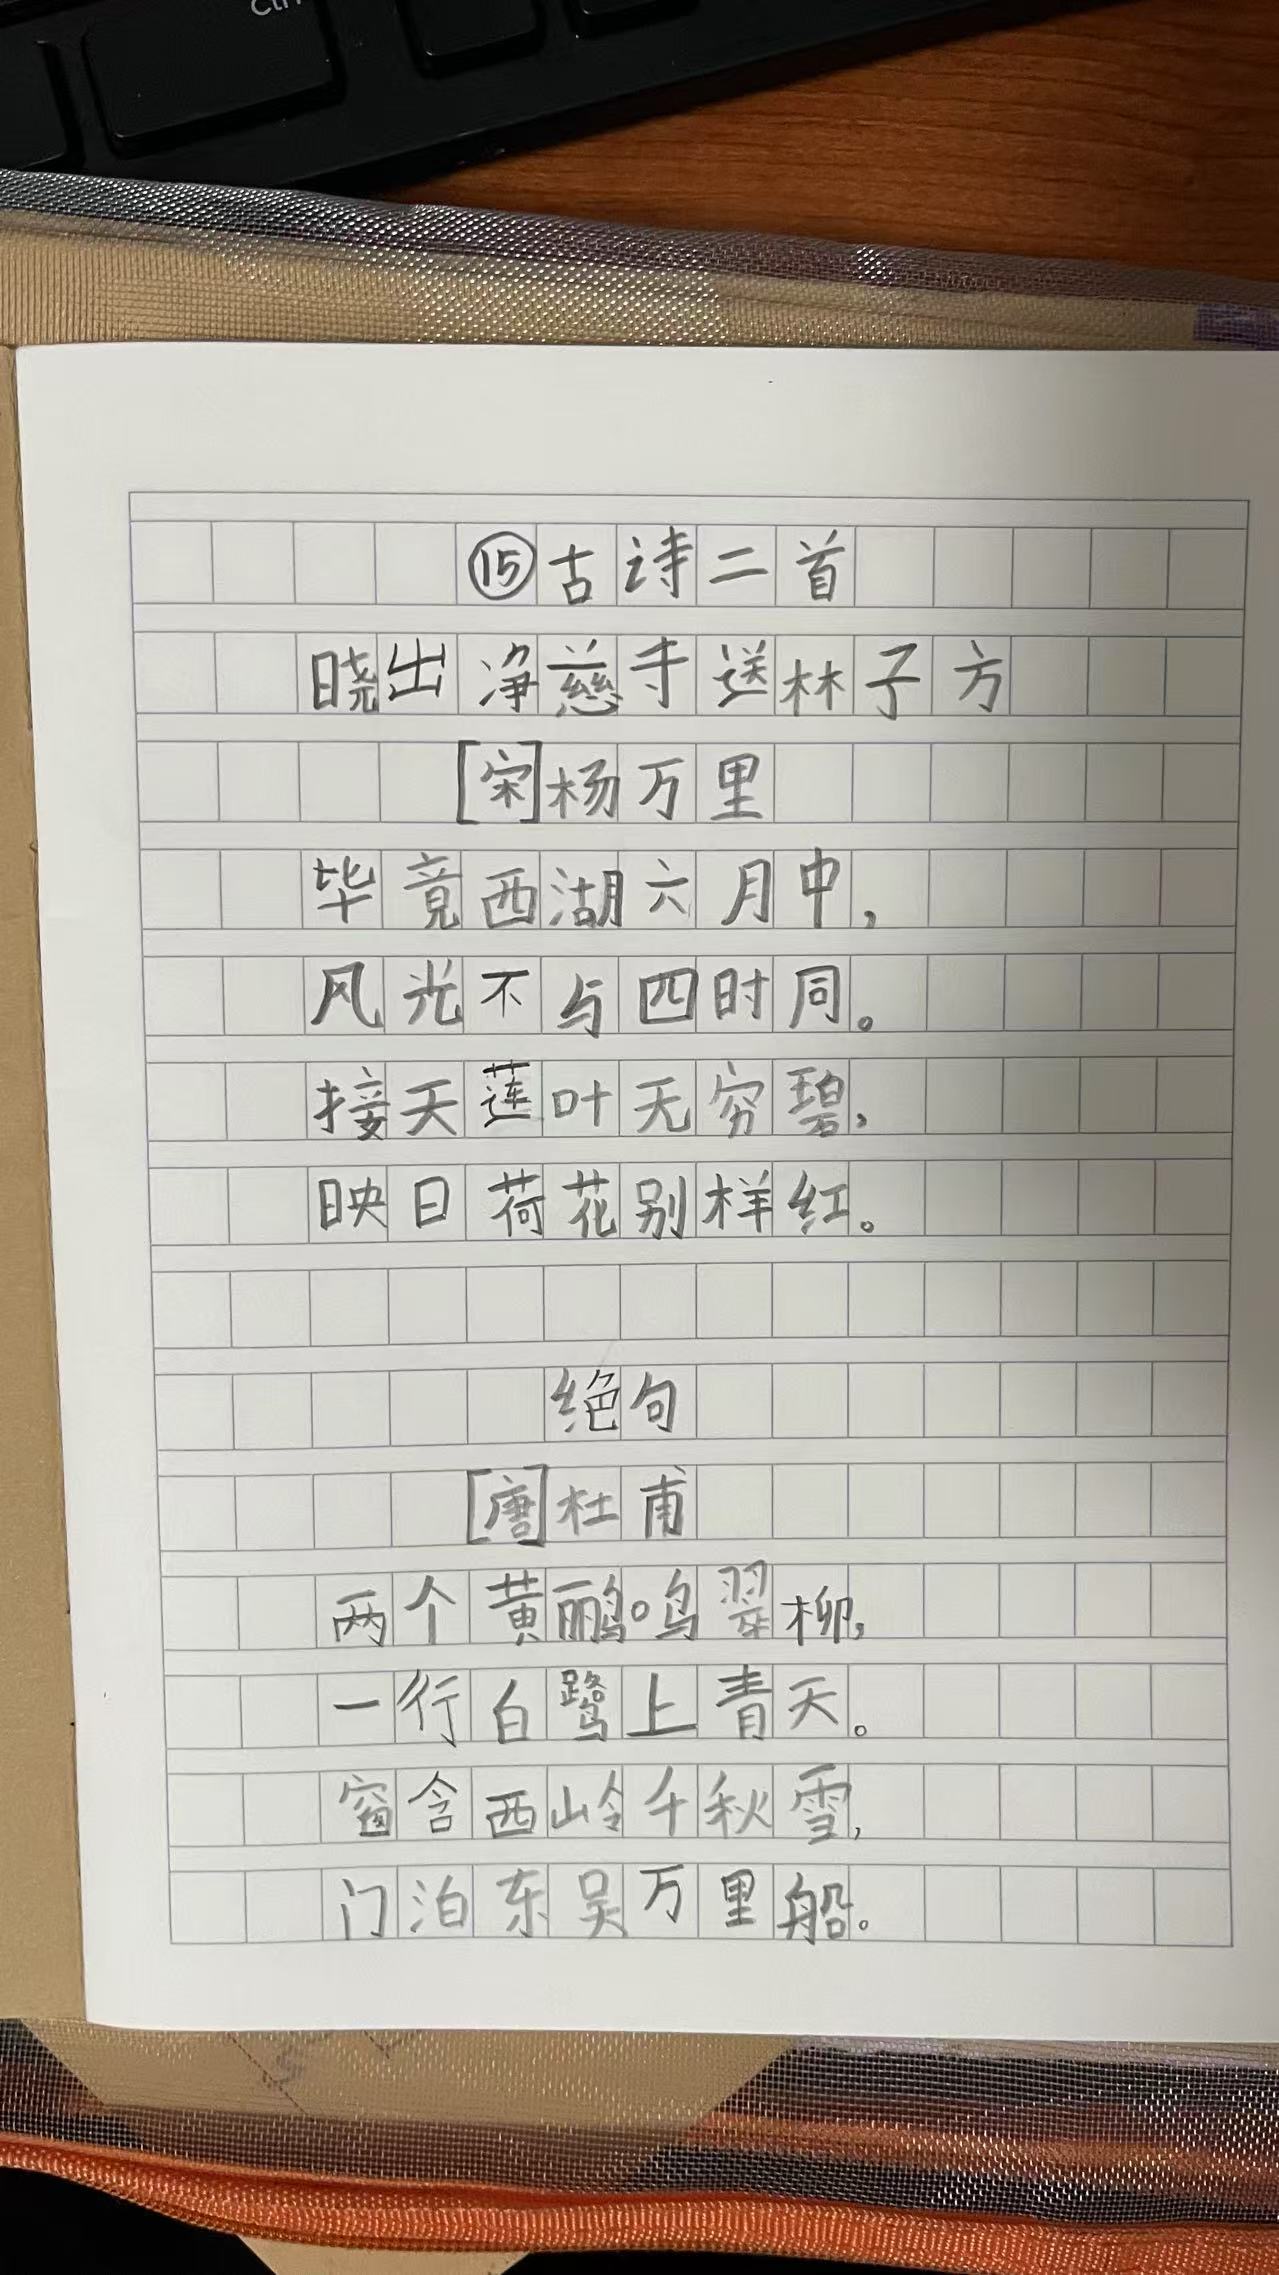 Ctrl
⑮古诗二首
晓出净慈寺送林子方
[宋]杨万里
毕竟西湖六月中，
风光不与四时同。
接天莲叶无穷碧，
映日荷花别样红。
绝句
[唐]杜甫
两个黄鹂鸣翠柳，
一行白鹭上青天。
窗含西岭千秋雪，
门泊东吴万里船。